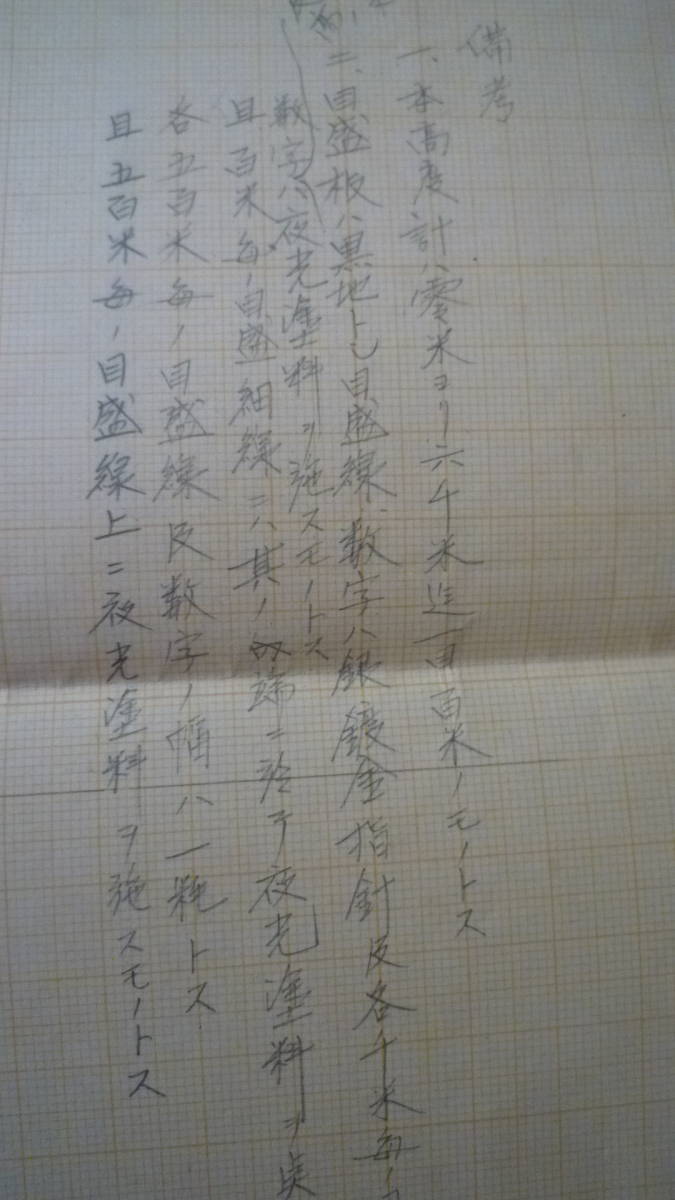 備考
一、本高度計ハ零米ヨリ六千米迄一目百米ノモノトス
二、目盛板ハ黒地トシ目盛線、数字ハ銀鍍金指針及各千米毎ノ
数字ハ夜光塗料ヲ施スモノトス
且百米毎ノ目盛細線ニハ其ノ端ニ於テ夜光塗料ヲ
各五百米毎ノ目盛線及数字ノ幅ハ一粍トス
且五百米毎ノ目盛線上ニ夜光塗料ヲ施スモノトス